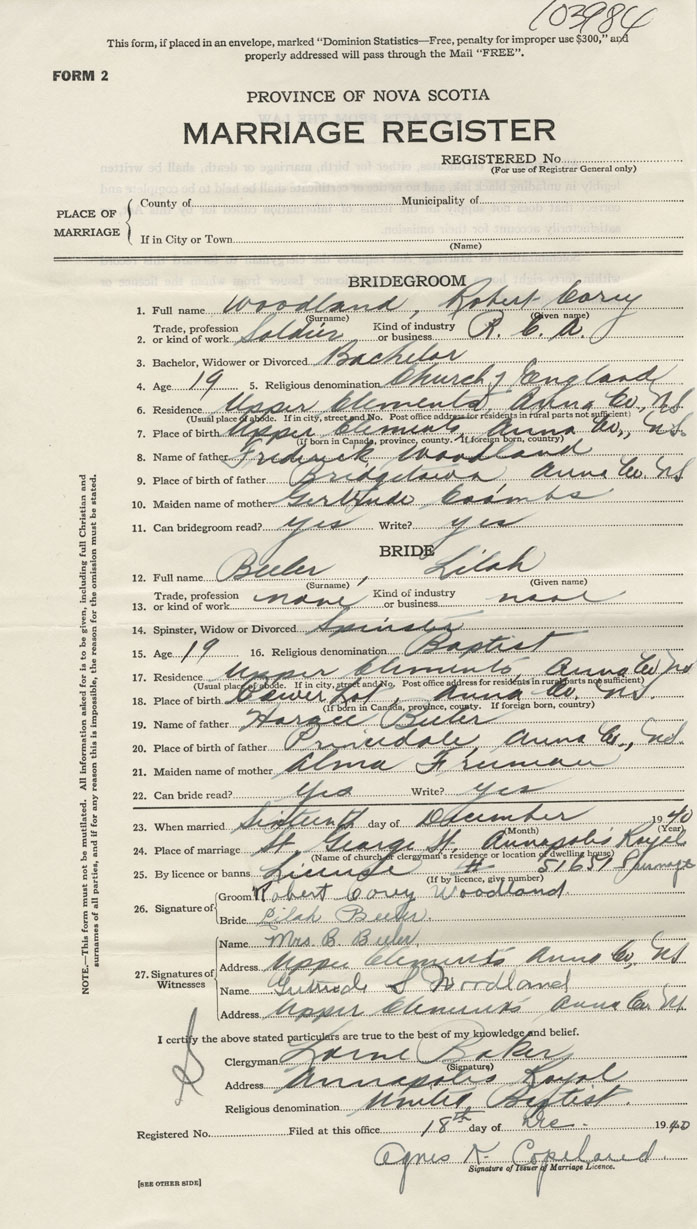 103984
This form, if placed in an envelope, marked "Dominion Statistics—Free, penalty for improper use $300," and
properly addressed will pass through the Mail "FREE".
FORM 2
PROVINCE OF NOVA SCOTIA
MARRIAGE REGISTER
REGISTERED No.
(For use of Registrar General only)
PLACE OF MARRIAGE
County of Municipality of
If in City or Town
(Name)
BRIDEGROOM
1. Full name Woodland, Robert Corey
(Surname) (Given name)
Trade, profession Kind of industry
2. or kind of work Soldier or business R. C. A.
3. Bachelor, Widower or Divorced Bachelor
4. Age 19 5. Religious denomination Church of England
6. Residence Upper Clements Anna Co, NS
(Usual place of abode. If in city, street and No. Post office address for residents in rural parts not sufficient)
7. Place of birth Upper Clements, Anna Co., NS.
(If born in Canada, province, county. If foreign born, country)
8. Name of father Fredrick Woodland
9. Place of birth of father Bridgetown Anna Co. NS
10. Maiden name of mother Gertrude Coombs
11. Can bridegroom read? yes Write? yes
BRIDE
12. Full name Beeler, Lilah
(Surname) (Given name)
Trade, profession Kind of industry
13. or kind of work none or business none
14. Spinster, Widow or Divorced Spinster
15. Age 19 16. Religious denomination Baptist
17. Residence Upper Clements Anna Co, NS
(Usual place of abode. If in city, street and No. Post office address for residents in rural parts not sufficient)
18. Place of birth Anna Co. NS.
(If born in Canada, province, county. If foreign born, country)
19. Name of father Horace Beeler
20. Place of birth of father Princedale, Anna Co., NS.
21. Maiden name of mother Alma Freeman
22. Can bride read? Yes Write? Yes
23. When married Sixteenth day of December 1940
(Month) (Year)
24. Place of marriage St. George St. Annapolis Royal
(Name of church or clergyman's residence or location of dwelling house)
25. By licence or banns License # 51659
(If by licence, give number)
26. Signature of
Groom Robert Corey Woodland
Bride Lilah Beeler.
27. Signatures of Witnesses
Name Mrs. B. Beeler,
Address Upper Clements Anna Co, NS
Name Gertrude S Woodland
Address Upper Clements Anna Co. N.
I certify the above stated particulars are true to the best of my knowledge and belief.
Clergyman Lorne Baker
(Signature)
Address Annapolis Royal
Religious denomination United Baptist.
Registered No. Filed at this office 18th day of Dec. 1940
Agnes K. Copeland.
Signature of Issuer of Marriage Licence.
[SEE OTHER SIDE]
NOTE.—This form must not be mutilated. All information asked for is to be given, including full Christian and
surnames of all parties, and if for any reason this is impossible, the reason for the omission must be stated.